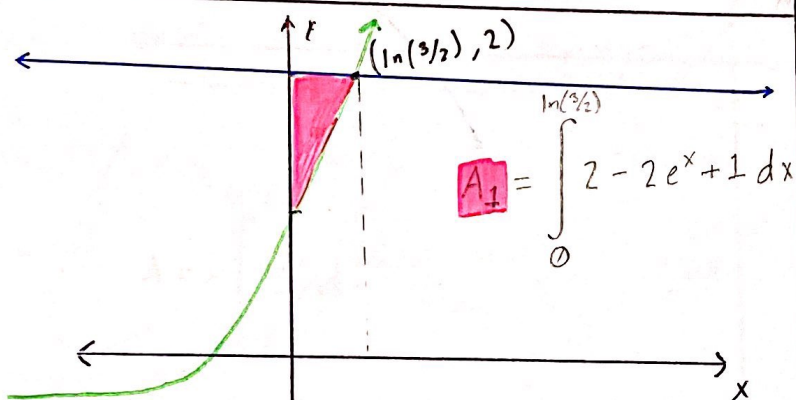 (ln(3/2), 2)
A₁ = ∫₀^ln(3/2) 2 - 2eˣ + 1 dx
x